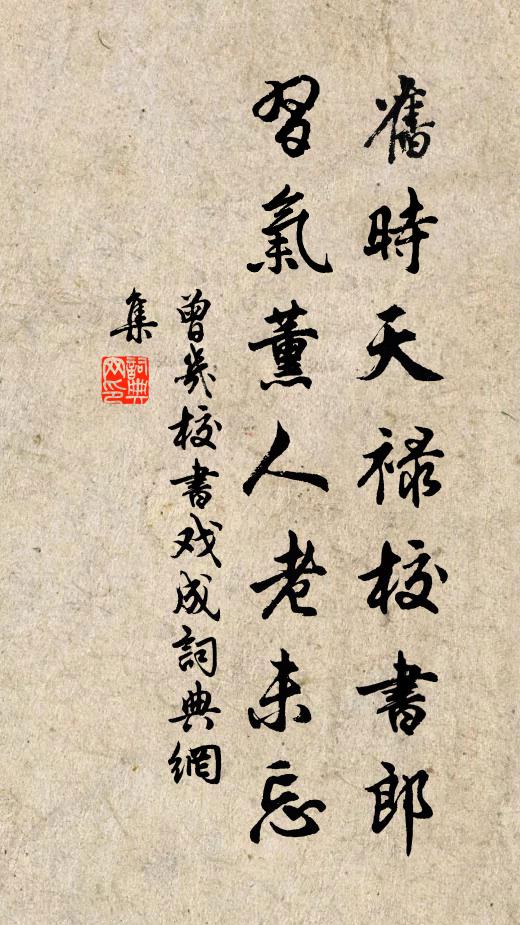 舊時天禄校書郎
習氣薰人老未忘
曾幾校書戏成詞典網
集
詞典網印